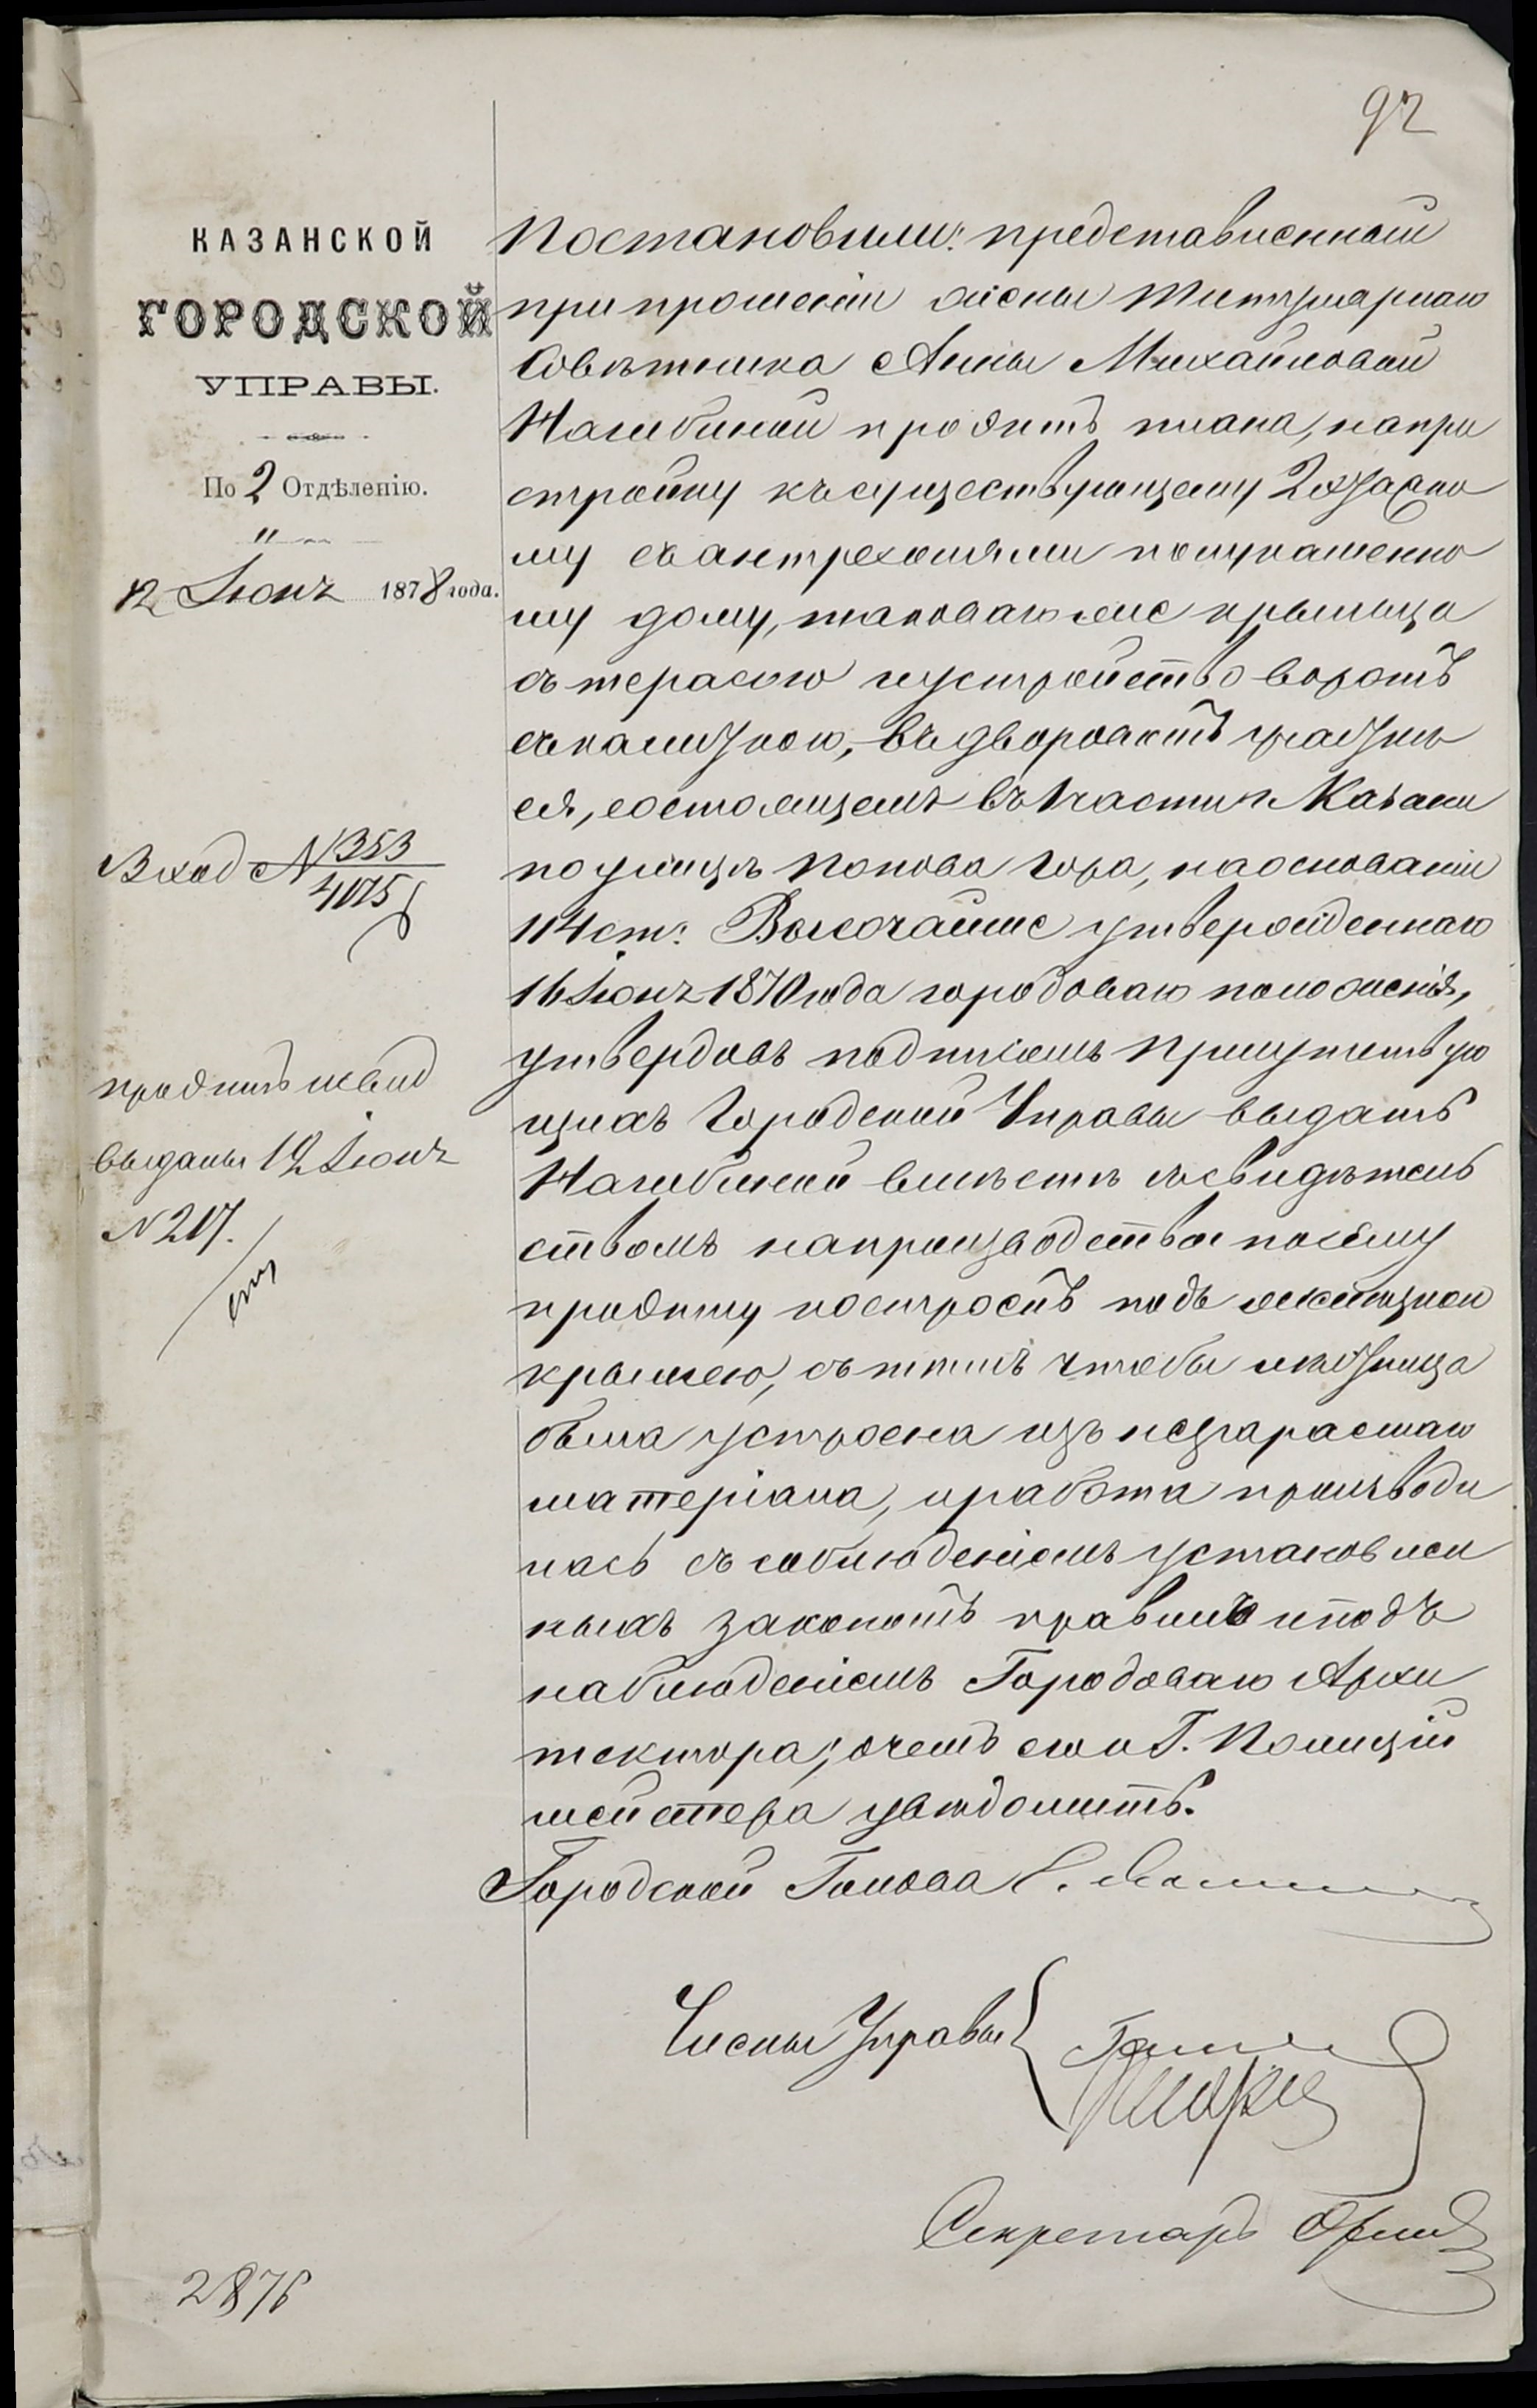 92
КАЗАНСКОЙ
ГОРОДСКОЙ
УПРАВЫ.
По 2 Отдѣленію.
12 Іюня 1878 года.
Вход № 353
4025
проэктъ и свид
выданы 12 Іюня
№ 217.
Постановили: представленной
при прошеніи жены Титулярнаго
Совѣтника Анны Михайловой
Нагибиной проэктъ плана, на при
стройку къ существующему 2хъэтажно
му съ антресолями полукаменно
му дому, таковаго же крыльца
съ терасою и устройство воротъ
съ калиткою, въ дворовомъ участкѣ
ея, состоящемъ въ 1 части г. Казани
по улицѣ Попова Гора, на основаніи
114 ст: Высочайше утвержденнаго
16 Іюня 1870 года городоваго положенія,
утвердивъ подписомъ Присутствую
щихъ Городской Управы выдать
Нагибиной вмѣстѣ съ свидѣтель
ствомъ на производство по сему
проэкту построекъ подъ желѣзною
крышею, съ тѣмъ чтобы лѣстница
была устроена изъ несгараемаго
матеріала, и работа производи
лась съ соблюденіемъ установлен
ныхъ закономъ правилъ и подъ
наблюденіемъ Городоваго Архи
тектора; о чемъ его и Г. Полицій
мейстера увѣдомить.
Городской Голова
Члены Управы
Секретарь
2876